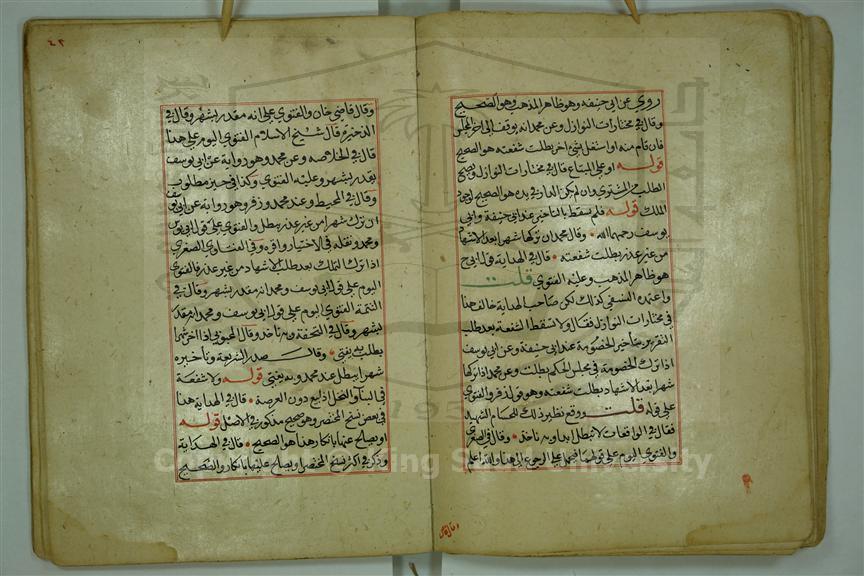 روي عن ابي حنيفه وهو ظاهر المذهب وهو الصحيح
وقال في مختارات النوازل وعن محمد انه يوقف الى اخر المجلس
فان قام منه او اشتغل بشئ اخر بطلت شفعته هو الصحيح
قوله او على المبتاع قال في مختارات النوازل ويصح
الطلب من المشتري وان لم يكن الدار في يده هو الصحيح لوجود
الملك قوله فلم يسقط بالتاخير عند ابي حنيفة وابي
يوسف رحمهما الله وقال محمد ان تركها شهرا بعد الاشهاد
من غير عذر بطلت شفعته قال في الهداية قول ابي ح
هو ظاهر المذهب وعليه الفتوى قلت
واعتمده النسفي كذلك لكن صاحب الهداية خالف هذا
في مختارات النوازل فقال ولا تسقط الشفعة بعد طلب
التقرير بتاخير الخصومة عند ابي حنيفة وعن ابي يوسف
اذا ترك الخصومة في مجلس الحكم بطلت وعن محمد اذا تركها
شهرا بعد الاشهاد بطلت شفعته وهو قول زفر والفتوى
على قوله قلت ووقع نظير ذلك للحسام الشهيد
فقال في الواقعات لا تبطل ابدا وبه ناخذ وقال في الصغرى
والفتوى اليوم على قولهما فيحمل على الرجوع الى هذا والله اعلم
وقال قاض
٤٢
وقال قاضي خان والفتوى على انه مقدر بشهر وقال في
الذخيرة قال شيخ الاسلام الفتوى اليوم على هذا
قال في الخلاصه وعن محمد وهو رواية عن ابي يوسف
يقدر بشهر وعليه الفتوى وكذا في حيز مطلوب
وقال في المحيط وعند محمد وزفر وهو رواية عن ابي يوسف
ان ترك شهرا من غير عذر يبطل والفتوى على قول ابي يوسف
ومحمد ونقله في الاختيار واقره وفي الفتاوى الصغرى
اذا ترك التملك بعد طلب الاشهاد من غير عذر فالفتوى
اليوم على قول ابي يوسف ومحمد انه مقدر بشهر وقال في
التتمة الفتوى اليوم على قول ابي يوسف ومحمد انه مقدر
بشهر وقال في التحفة وبه ناخذ وقال المحبوبي اذا اخر شهرا
بطلت به يفتى وقال صدر الشريعة وتاخيره
شهرا يبطل عند محمد وبه يفتى قوله ولا شفعة
في البناء والنخل اذا بيع دون العرصة قال في الهداية هذا
في بعض نسخ المختصر وهو صحيح مذكور في الاصل قوله
او يصالح عنها بانكار هذا هو الصحيح قال في الهداية
وذكر في اكثر نسخ المختصر او يصالح عليها بانكار والصحيح
Copyright © King Saud University
195